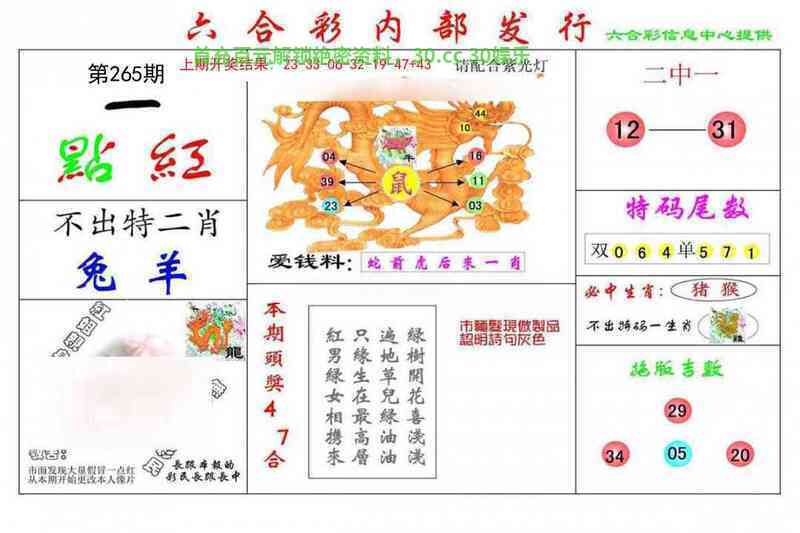 六合彩内部发行
六合彩信息中心提供
首存百元解锁绝密资料，30.cc 30娱乐
上期开奖结果：23-33-06-32-19-47+43
请配合紫光灯
第265期
一
點 紅
不出特二肖
兔 羊
龍
市面发现大量假冒一点红
从本期开始更改本人像片
長跟本報的
彩民長跟長中
44
10
牛
04 16
39 鼠 11
23 03
爱钱料：蛇前虎后来一肖
本期頭獎47合
綠樹開花喜淺淺
遍地草兒綠油油
只緣生在最高層
紅男綠女相携來
市面髮現做製品
認明詩句灰色
二中一
12 31
特码尾数
双064单571
必中生肖：猪猴
不出特码一生肖
雞
绝版吉数
29
34 05 20